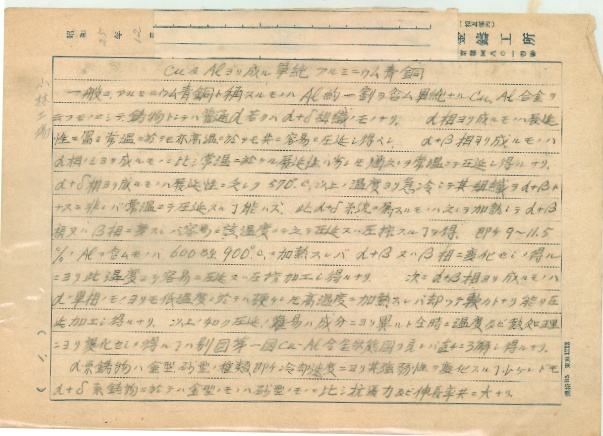 昭和25年12
金鋳工所
Cu及Alヨリ成ル単純アルミニウム青銅
一般ニアルミニウム青銅ト稱スルモノハAl約一割ヲ含ム単純ナルCu,Al合金ヲ
シテ鋳物トシテハ普通α若クハα+δ組織ノモノナリ。 α相ヨリ成ルモノハ展延
性ニ富ミ常温ニ於テモ亦高温ニ於テモ共ニ容易ニ圧延シ得ベシ。 α+β相ヨリ成ルモノハ
α相ノミヨリ成ルモノニ比シ常温ニ於ケル展延性ハ劣レモ猶之ヲ常温ニテ圧延シ得ルナリ。
α+δ相ヨリ成ルモノハ展延性ニ乏シク570°C以上ノ温度ヨリ急冷シテ其組織ヲα+βト
ナスニ非レバ常温ニテ圧延スル能ハズ。此α+δ系統ニ属スルモノハ之ヲ加熱シテα+β
相又ハβ相ニ変スレバ容易ニ該温度ニテ之ヲ圧延又ハ圧搾スルヲ得。即チ9~11.5
%ノAlヲ含ムモノハ600乃至900°C.ニ加熱スレバα+β又ハβ相ニ変化セシメ得ル
ニヨリ此温度ニテ容易ニ圧延又ハ圧搾加工シ得ルナリ。 次ニα+β相ヨリ成ルモノハ
α単相ノモノヨリモ低温度ニ於テハ硬キモ高温度ニ加熱スレバ却テ軟カトナリ能ク圧
延加工シ得ルナリ。 以上ノ如ク圧延ノ難易ハ成分ニヨリ異ルト仝時ニ温度及ビ熱処理
ニヨリ変化セシメ得ルハ別図第一図Cu-Al合金状態図ヲ見レバ直ニ了解シ得ルナリ。
α系鋳物ハ金型砂型ノ種類即チ冷却速度ニヨリ其強弱性ヲ変化スル少ケレドモ
α+δ系鋳物ニ於テハ金型ノモノハ砂型ノモノニ比シ抗張力及ビ伸長率共ニ大ナリ。
(1.)